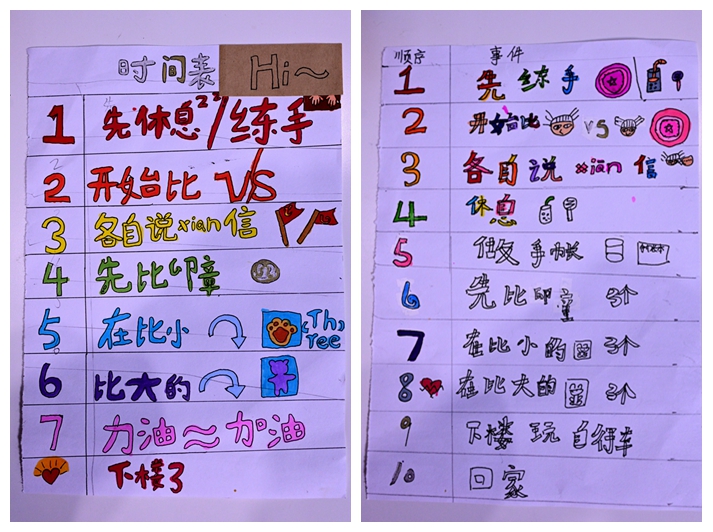 时间表 Hi~
1 先休息zz/练手
2 开始比 VS
3 各自说xian信
4 先比印章
5 在比小 (Th)ree
6 比大的
7 力油~加油
下楼了
顺序 事件
1 先练手
2 开始比 VS
3 各自说xian信
4 休息
5 做手帐
6 先比印章 3个
7 在比小的 3个
8 在比大的 3个
9 下楼玩自行车
10 回家